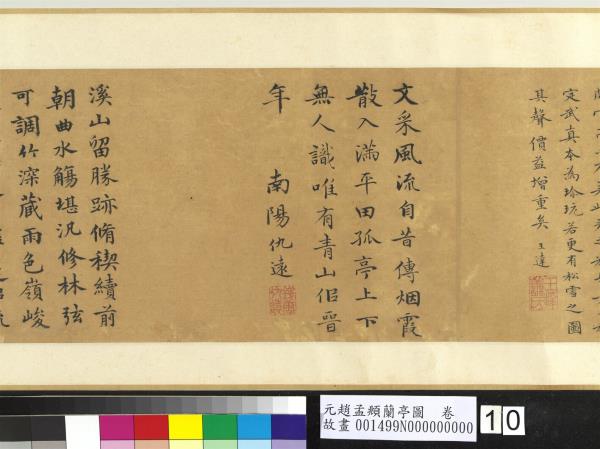 定武真本為珍玩若更有松雪之圖
其聲價益增重矣 王達
文采風流自昔傳烟霞
散入滿平田孤亭上下
無人識唯有青山似晉
年 南陽仇遠
溪山留勝跡脩稧續前
朝曲水觴堪汎修林弦
可調竹深蔵雨色嶺峻
元趙孟頫蘭亭圖 卷
故畫 001499N000000000
10